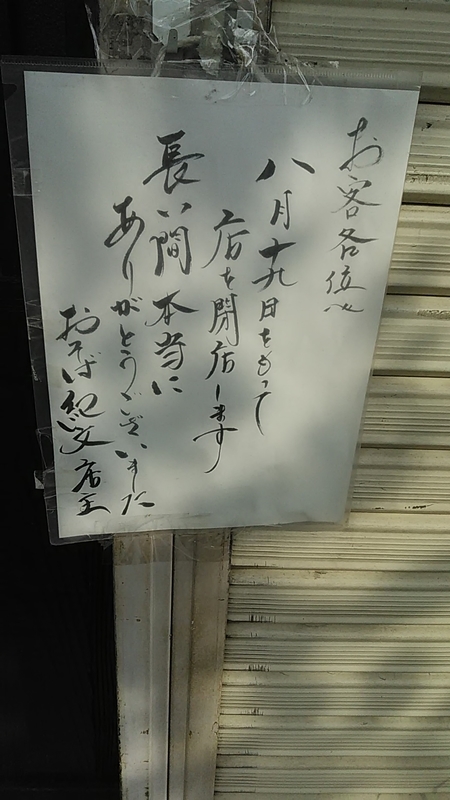 お客各位へ
八月十九日をもって
店を閉店します
長い間本当に
ありがとうございました
おそば紀文店主